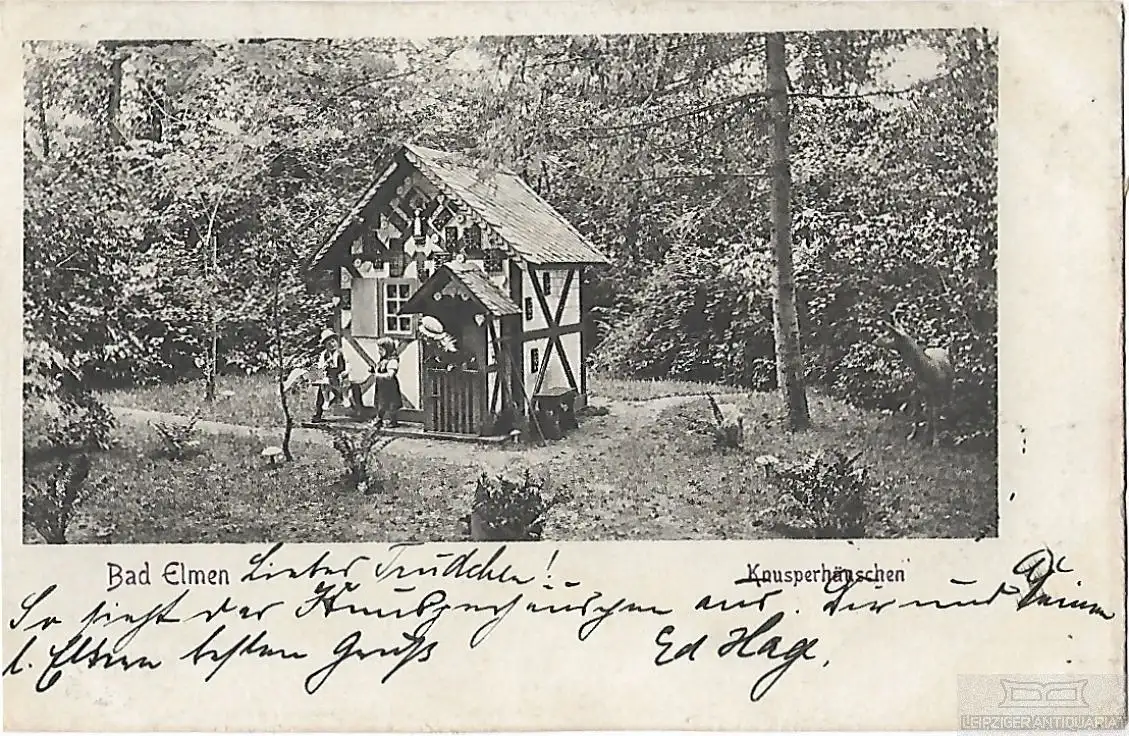 Bad Elmen Liebes Trudchen! Knusperhäuschen
So sieht das Knusperhäuschen aus. Dir und Deinen
l. Eltern besten Gruß Ed Hage.
LEIPZIGER ANTIQUARIAT